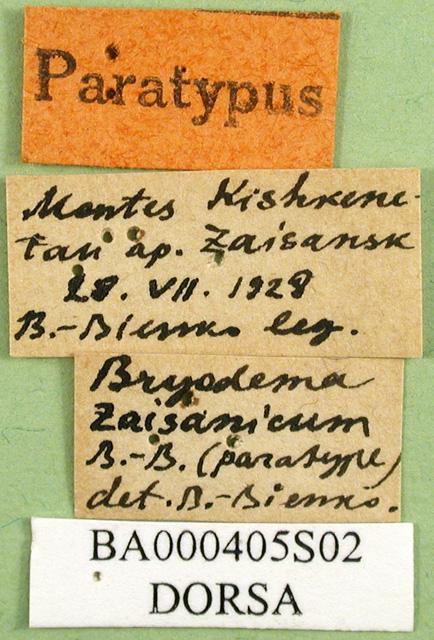 Paratypus
Montes Kishkene-
tau ap. Zaisansk
28. VII. 1928
B.-Bienko leg.
Bryodema
zaisanicum
B.-B. (paratype)
det. B.-Bienko.
BA000405S02
DORSA